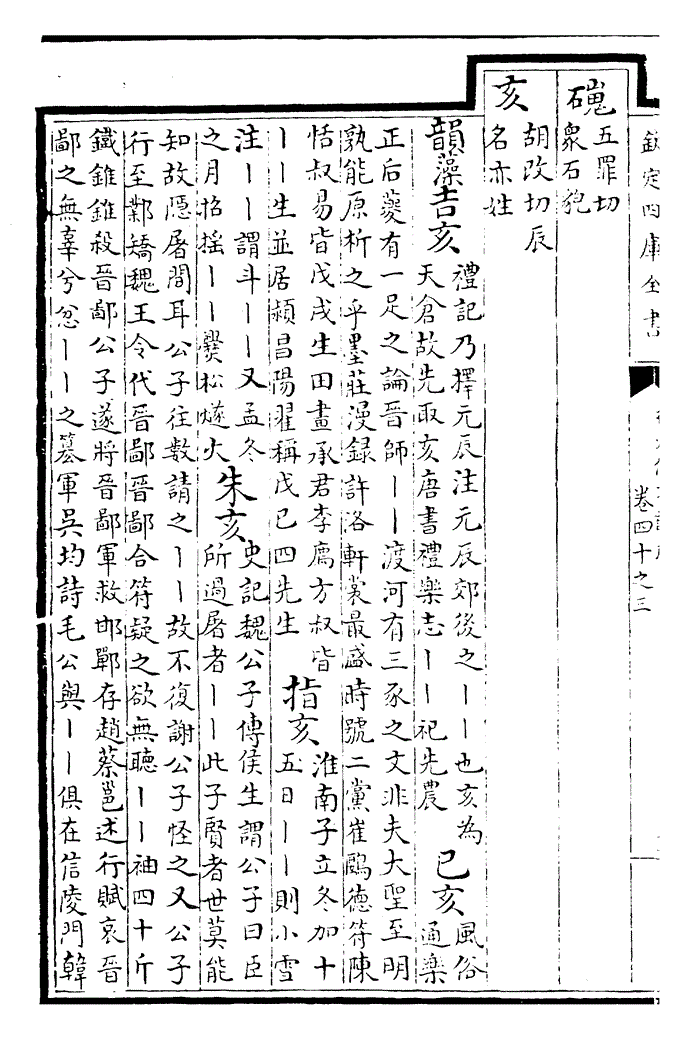 欽定四庫全書
卷四十之三
磈
五罪切
衆石貌
亥
胡改切辰
名亦姓
韻藻吉亥
禮記乃擇元辰注元辰郊後之丨丨也亥為
天倉故先取亥唐書禮樂志丨丨祀先農
己亥
風俗
通樂
正后夔有一足之論晉師丨丨渡河有三豕之文非夫大聖至明
孰能原析之乎墨莊漫録許洛軒裳最盛時號二黨崔鷗德符陳
恬叔易皆戊戌生田晝承君李廌方叔皆
丨丨生並居潁昌陽翟稱戊己四先生
指亥
淮南子立冬加十
五日丨丨則小雪
注丨丨謂斗丨丨又孟冬
之月招摇丨丨爨松燧火
朱亥
史記魏公子傳侯生謂公子曰臣
所過屠者丨丨此子賢者世莫能
知故隱屠間耳公子往數請之丨丨故不復謝公子怪之又公子
行至鄴矯魏王令代晉鄙晉鄙合符疑之欲無聽丨丨袖四十斤
鐵錐錐殺晉鄙公子遂將晉鄙軍救邯鄲存趙蔡邕述行賦哀晉
鄙之無辜兮忿丨丨之簒軍吳均詩毛公與丨丨俱在信陵門韓